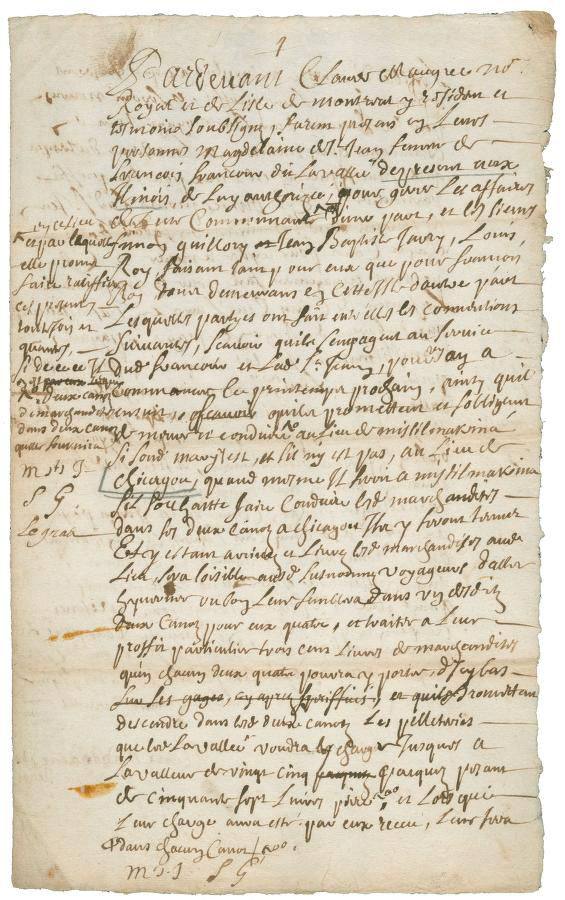 1
Pardevant Claude Maugue no.re
Royal en de Lisle de montreal y residen et
tesmoins soubsignez, furent presens en leurs
personnes Magdelaine de St. Jean femme de
francois francoeur dit Lavallée de present aux
Ilinois, de luy authorizée, pour gerer les affaires
de leur Communauté d'une part, et les sieurs
Simon guillory et Jean Baptiste Javry, Louis
Roy faisant tant pour eux que pour francois
Roy tous demeurans en cette isle d'autre part
Lesquelles partyes ont fait entre elles les conventions
suivantes, scavoir quils sengagent au service
dud francoeur et lad St. Jean, pour
commancer le printemps prochain, ainsy quil
ensuit, scavoir quils promettent et sobligent
de mener et conduire au lieu de missilmakina
si led mary est, et sil ny est pas, au lieu de
chicagou, quand mesme Il seroit a missilmakina
sil souhaitte faire conduire lesd marchandises
dans les deux canots a chicagou Ils y seront tenus
Et y estant arrivez et livré lesd marchandises aud
Lieu, sera loisible ausd susnommez voyageurs d'aller
hyverner ou bon leur semblera dans un desdits
deux canots pour eux quatre, et traiter a leur
proffit particulier trois cens livres de marchandises
quun chacun deux quatre pourra y porter,
sur les gages, cy apres specifficés, et quils promettent
descendre dans lesd deux canots les pelleteries
que led Lavallée voudra charger Jusques a
la valleur de vingt cinq pacquets pezant
de cinquante sept livres piece, et lors que
leur charge aura esté par eux receue, leur sera
dans chacun canot
m d J S G
en ce lieu
a par laquelle
elle promet
faire ratiffier
ces presentes
touttesfois et
quantes,
deux canots
de marchandises
dans deux canots
quelle fournira
m d J
S G